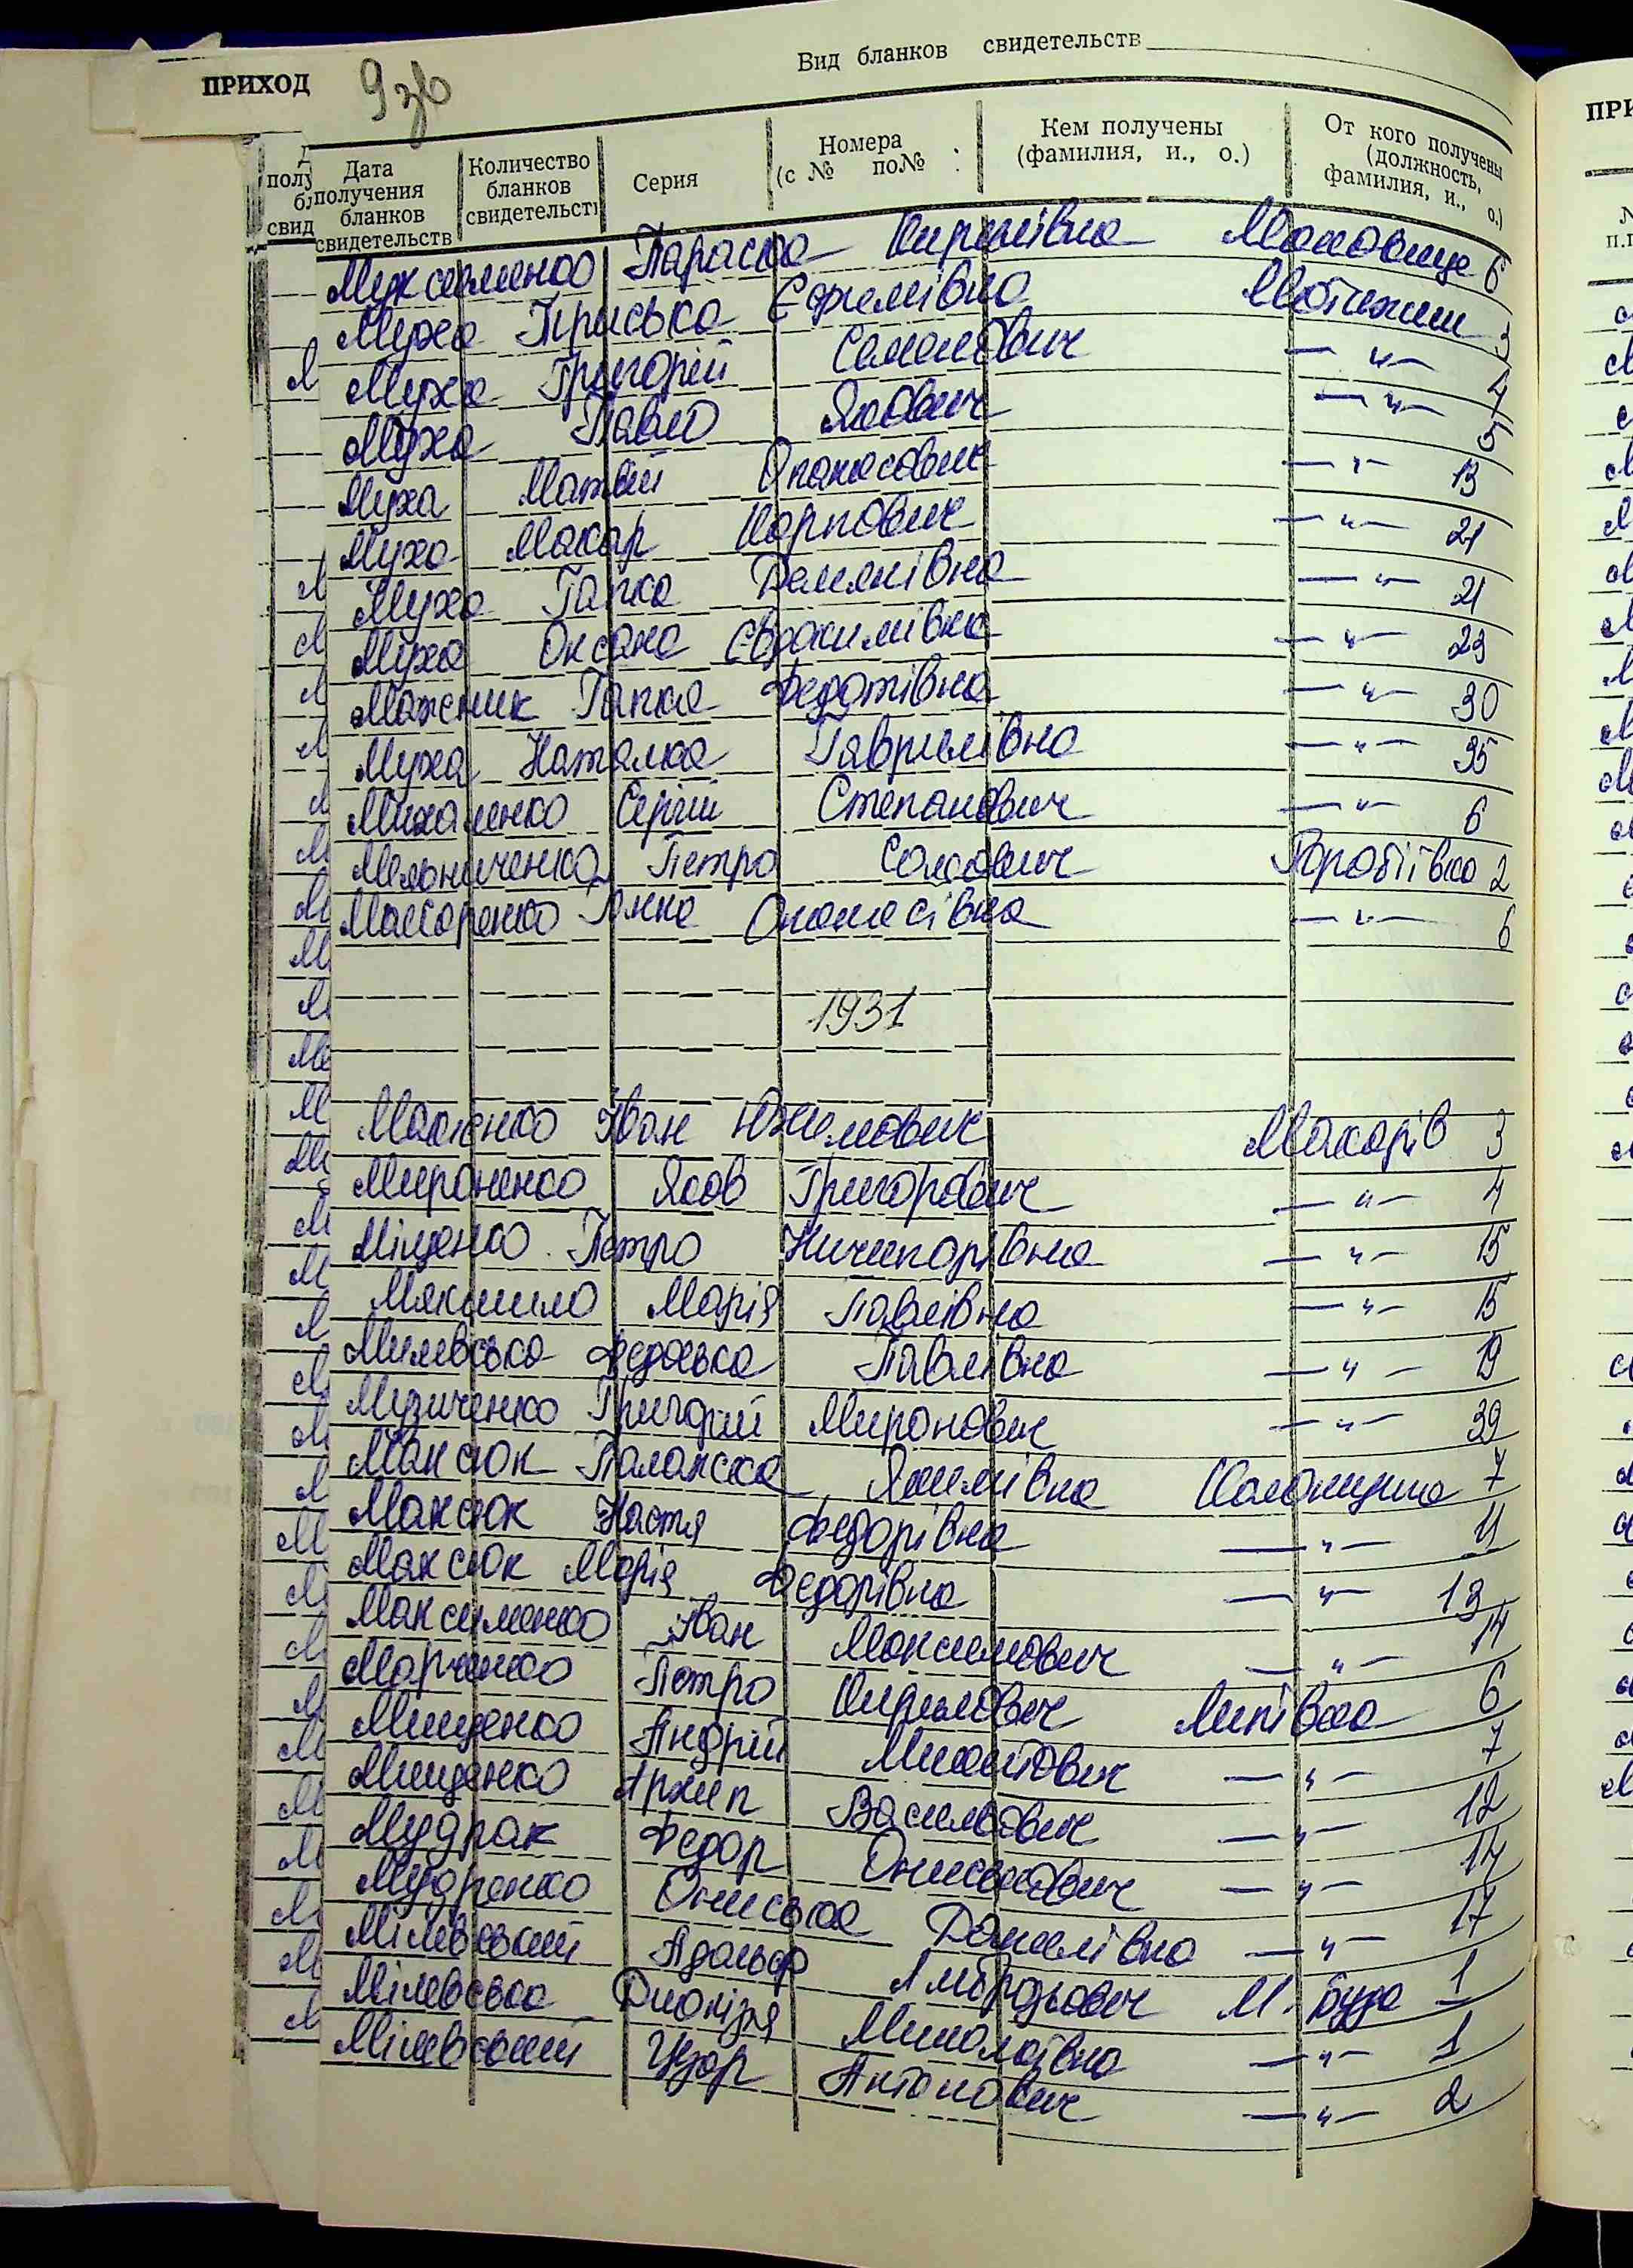 Вид бланков свидетельств
ПРИХОД 9зв
Дата получения бланков свидетельств
Количество бланков свидетельств
Серия
Номера (с № по №
Кем получены (фамилия, и., о.)
От кого получены (должность, фамилия, и., о.)
Параска Кирилівна Маковище 6
Муха Приська Єфимівна Мотижин 3
Муха Григорій Семенович — " — 4
Муха Павло Якович — " — 5
Муха Матвій Опанасович — " — 13
Муха Макар Карпович — " — 21
Муха Гапка Демянівна — " — 21
Муха Оксана Євдокимівна — " — 23
Гапка Федотівна — " — 30
Муха Наталка Гаврилівна — " — 35
Михаленко Сергій Степанович — " — 6
Мельниченко Петро Савович Горобіївка 2
Макаренко Ганна Опанасівна — " — 6
1931
Іван Юхимович Макарів 3
Мироненко Яков Григорович — " — 4
Міщенко Петро Ничипорівна — " — 15
Марія Павлівна — " — 15
Милевська Федоська Павлівна — " — 19
Музиченко Григорій Миронович — " — 39
Максюк Палажка Якимівна Колонщина 7
Максюк Настя Федорівна — " — 11
Максюк Марія Федорівна — " — 13
Максименко Іван Максимович — " — 14
Марченко Петро Кирилович Липівка 6
Мищенко Андрій Микитович — " — 7
Мищенко Архип Васильович — " — 12
Мудрак Федор Ониськович — " — 14
Мудренко Ониська Данилівна — " — 17
Мілевський Адольф М. Буда 1
Мілевська Дионізія Миколаївна — " — 1
Мілевський Цезар Антонович — " — 2